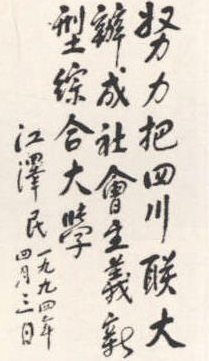 努力把四川联大
辦成社會主義新
型综合大學
江澤民
一九九四年
四月三日